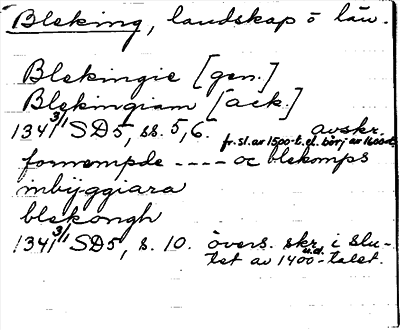 Bleking, landskap o län.
Blekingie [gen.]
Blekingiam [ack.]
1341 3/1 SD5, ss. 5, 6. avskr.
fr. sl. av 1500-t. el. börj av 1600-t.
fornempde ---- oc blekomps
inbyggiara
blekongh
1341 3/1 SD5, s. 10. övers. skr. i slu-
tet av 1400-talet.